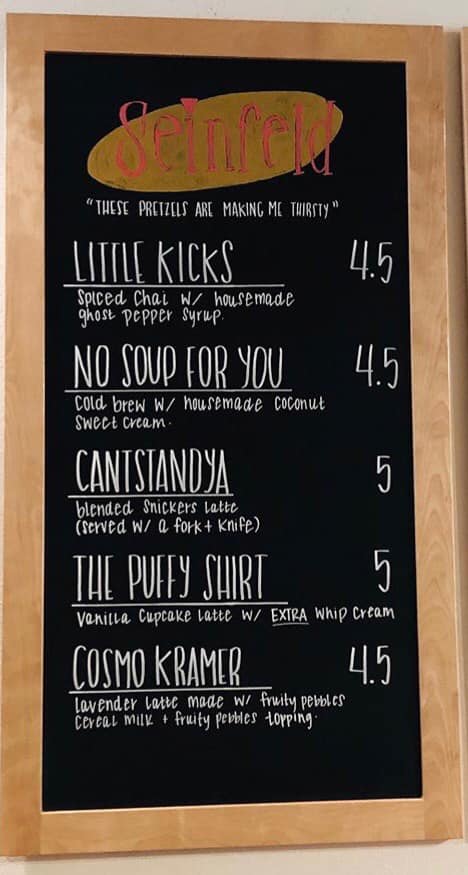 Seinfeld
"THESE PRETZELS ARE MAKING ME THIRSTY"
LITTLE KICKS 4.5
Spiced Chai w/ housemade
ghost pepper syrup.
NO SOUP FOR YOU 4.5
Cold brew w/ housemade coconut
sweet cream.
CANTSTANDYA 5
blended Snickers latte
(served w/ a fork + knife)
THE PUFFY SHIRT 5
Vanilla Cupcake Latte w/ EXTRA whip cream
COSMO KRAMER 4.5
lavender latte made w/ fruity pebbles
cereal milk + fruity pebbles topping.